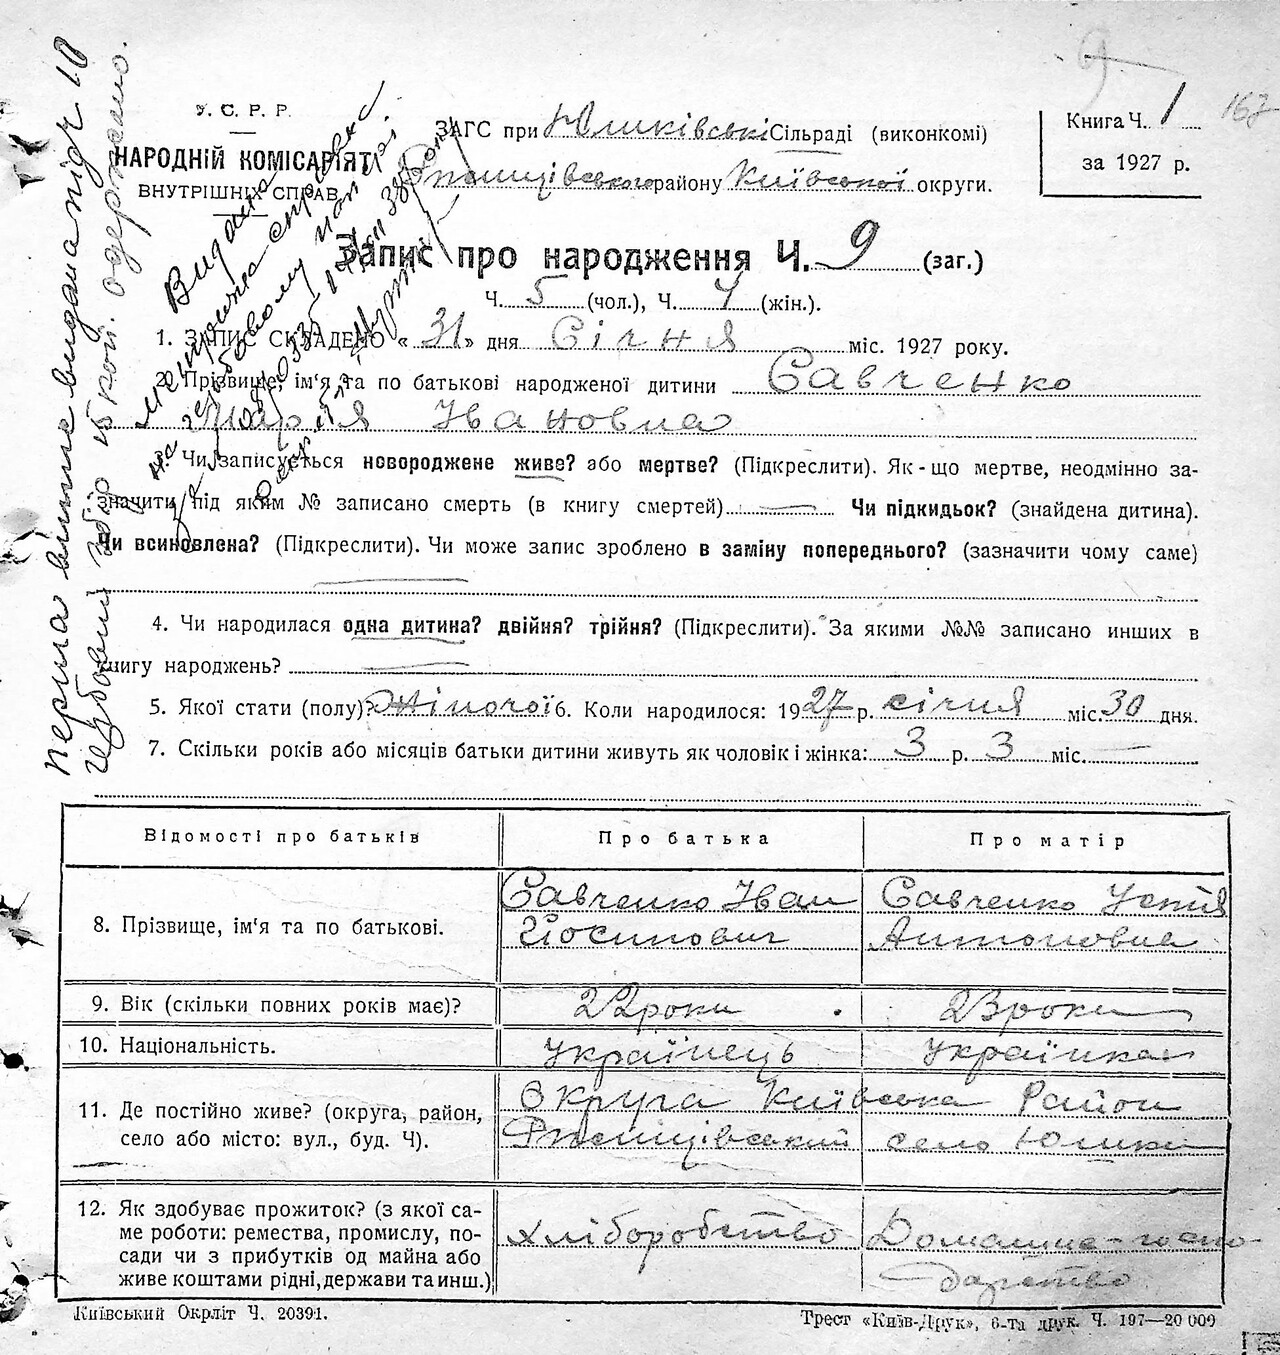 У. С. Р. Р.
НАРОДНІЙ КОМІСАРІЯТ
ВНУТРІШНІХ СПРАВ
ЗАГС при Юшківській Сільраді (виконкомі)
Ржищівського району Київської округи.
Книга Ч. 1
за 1927 р.
9
163
Запис про народження Ч. 9 (заг.)
Ч. 5 (чол.), Ч. 4 (жін.).
1. ЗАПИС СКЛАДЕНО « 31 » дня Січня міс. 1927 року.
2. Прізвище, ім'я та по батькові народженої дитини Савченко
Марія Івановна
3. Чи записується новороджене живе? або мертве? (Підкреслити). Як-що мертве, неодмінно за-
значити під яким № записано смерть (в книгу смертей) — Чи підкидьок? (знайдена дитина).
Чи всиновлена? (Підкреслити). Чи може запис зроблено в заміну попереднього? (зазначити чому саме)
4. Чи народилася одна дитина? двійня? трійня? (Підкреслити). За якими №№ записано инших в
книгу народжень?
5. Якої стати (полу)? Жіночої 6. Коли народилося: 1927 р. січня міс. 30 дня.
7. Скільки років або місяців батьки дитини живуть як чоловік і жінка: 3 р. 3 міс. —
Відомості про батьків Про батька Про матір
8. Прізвище, ім'я та по батькові.
Савченко Іван
Йосипович
Савченко Устія
Антоновна
9. Вік (скільки повних років має)? 22 роки 23 роки
10. Національність. Українець Українка
11. Де постійно живе? (округа, район,
село або місто: вул., буд. Ч).
Округа Київська Район
Ржищівський село Юшки
12. Як здобуває прожиток? (з якої са-
ме роботи: ремества, промислу, по-
сади чи з прибутків од майна або
живе коштами рідні, держави та инш.)
хліборобство
Домашнє-госпо-
дарство
Київський Окрліт Ч. 20391.
Трест «Київ-Друк», 6-та друк. Ч. 197—20 000
Видана
метрична справка
на гербовому папері
перша випис видана під ч 10
гербовий збір 15 коп. одержано.